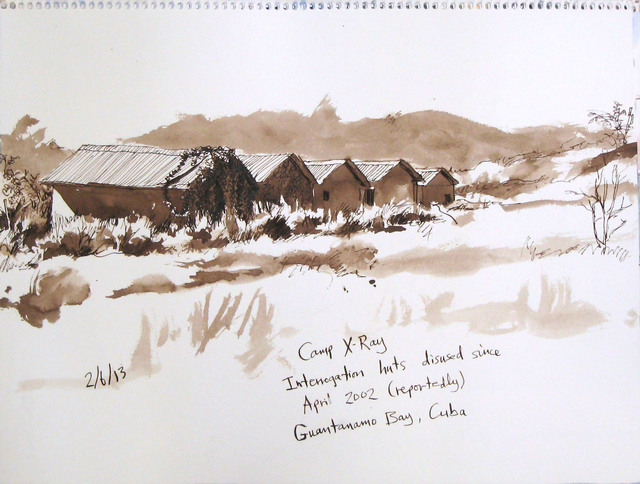 2/6/13
Camp X-Ray
Interrogation huts disused since
April 2002 (reportedly)
Guantanamo Bay, Cuba